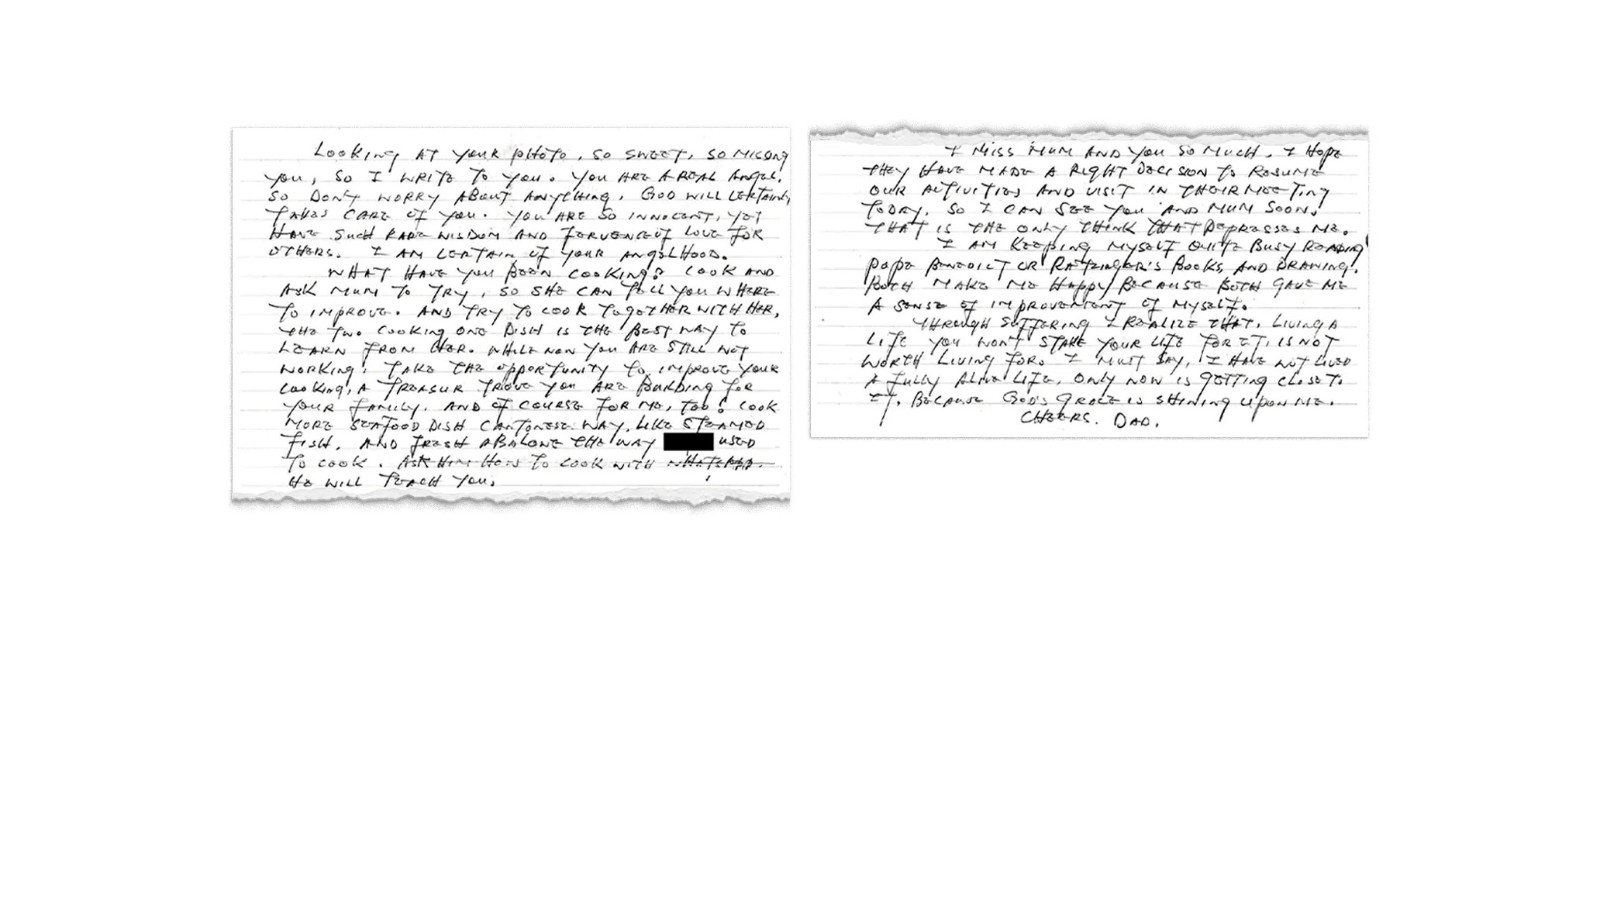 Looking AT your photo, SO SWEET, SO MISSING
you, SO I WRITE TO you. you ARE A REAL Angel.
SO DON'T WORRY ABOUT ANYTHING, GOD WILL CERTAINLY
TAKES CARE of you. you ARE SO INNOCENT, yET
HAVE SUCH RARE WISDOM AND FERVENCE of LOVE FOR
OTHERS. I AM CERTAIN of your ANGELHOOD.
WHAT HAVE you BEEN COOKING? COOK AND
ASK MUM TO TRY, SO SHE CAN TELL you WHERE
TO IMPROVE. AND TRY TO COOK TOGETHER WITH HER,
THE TWO COOKING ONE DISH IS THE BEST WAY TO
LEARN FROM HER. WHILE NOW you ARE STILL NOT
WORKING, TAKE THE OPPORTUNITY TO IMPROVE YOUR
COOKING, A TREASUR TROVE you ARE BUILDING FOR
YOUR FAMILY. AND OF COURSE FOR ME, TOO! COOK
MORE SEAFOOD DISH CANTONESE WAY, LIKE STEAMED
FISH. AND FRESH ABALONE THE WAY USED
TO COOK. ASK HIM HOW TO COOK WITH
HE WILL TEACH you.
I MISS MUM AND you SO MUCH. I HOPE
THEY HAVE MADE A RIGHT DECISION TO RESUME
OUR ACTIVITIES AND VISIT IN THEIR MEETING
TODAY, SO I CAN SEE you AND MUM SOON.
THAT IS THE ONLY THINK THAT DEPRESSES ME.
I AM KEEPING MYSELF QUITE BUSY READING
POPE BENEDICT OR RATZINGER'S BOOKS AND DRAWING.
BOTH MAKE ME HAPPY BECAUSE BOTH GAVE ME
A SENSE OF IMPROVEMENT OF MYSELF.
THROUGH SUFFERING I REALIZE THAT, LIVING A
LIFE you WON'T STAKE YOUR LIFE FOR IT, IS NOT
WORTH LIVING FOR. I MUST SAY, I HAVE NOT LIVED
A FULLY ALIVE LIFE, ONLY NOW IS GETTING CLOSE TO
IT. BECAUSE GOD'S GRACE IS SHINING UPON ME.
CHEERS. DAD.